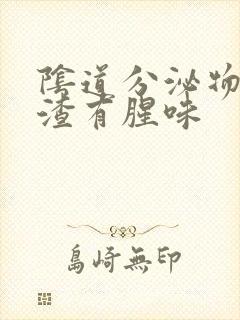 陰道分泌物
渣有腥味
島崎無印